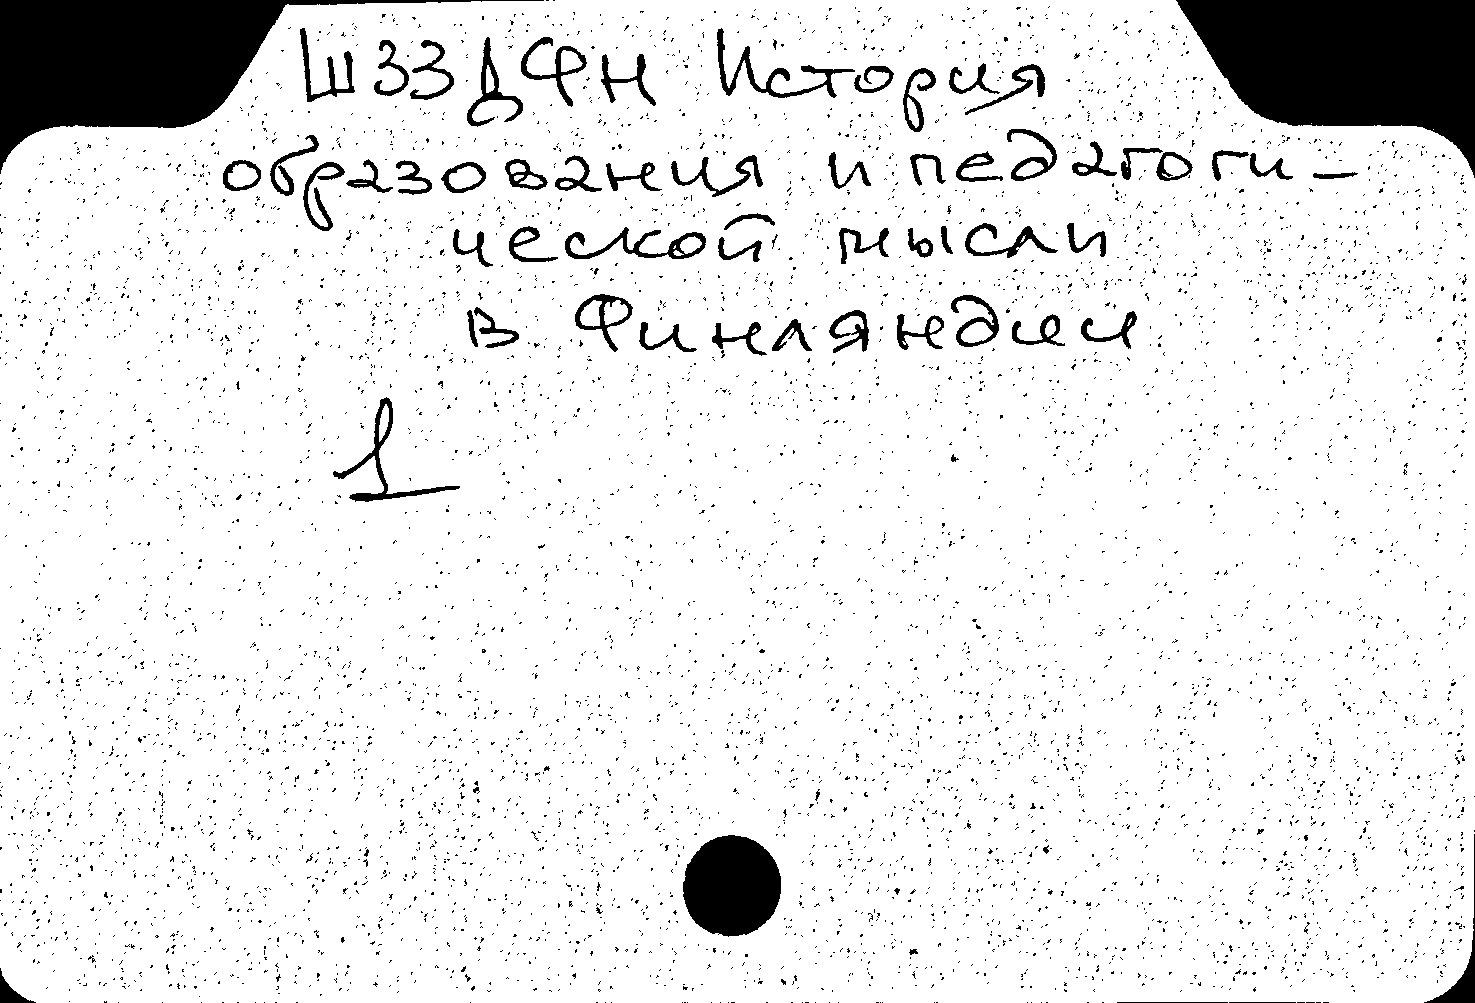 Ш33ДФН История
образования и педагоги-
ческой мысли
в Финляндии
1